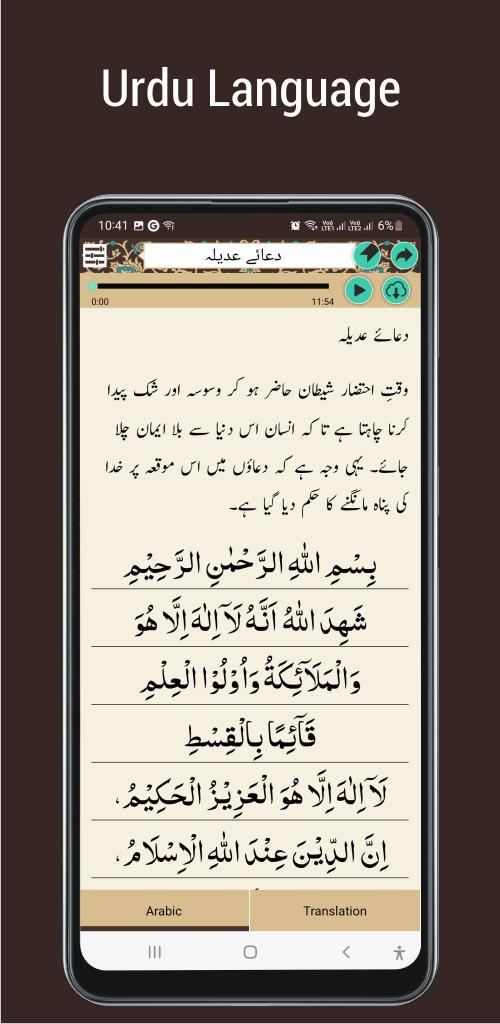 Urdu Language
10:41
Vo)) LTE1 Vo)) LTE2 6%
دعائے عدیلہ
0:00 11:54
دعائے عدیلہ
وقتِ احتضار شیطان حاضر ہو کر وسوسہ اور شک پیدا
کرنا چاہتا ہے تا کہ انسان اس دنیا سے بلا ایمان چلا
جائے۔ یہی وجہ ہے کہ دعاؤں میں اس موقعہ پر خدا
کی پناہ مانگنے کا حکم دیا گیا ہے۔
بِسْمِ اللّٰهِ الرَّحْمٰنِ الرَّحِيْمِ
شَهِدَ اللّٰهُ اَنَّهُ لَآ اِلٰهَ اِلَّا هُوَ
وَالْمَلَآئِكَةُ وَاُوْلُوْا الْعِلْمِ
قَآئِمًا بِالْقِسْطِ
لَآ اِلٰهَ اِلَّا هُوَ الْعَزِيْزُ الْحَكِيْمُ،
اِنَّ الدِّيْنَ عِنْدَ اللّٰهِ الْاِسْلَامُ،
Arabic Translation